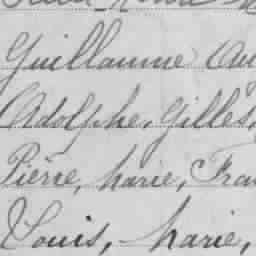 Guillaume Au
Adolphe, Gilles,
Pierre, Marie, Fran
Louis, Marie,